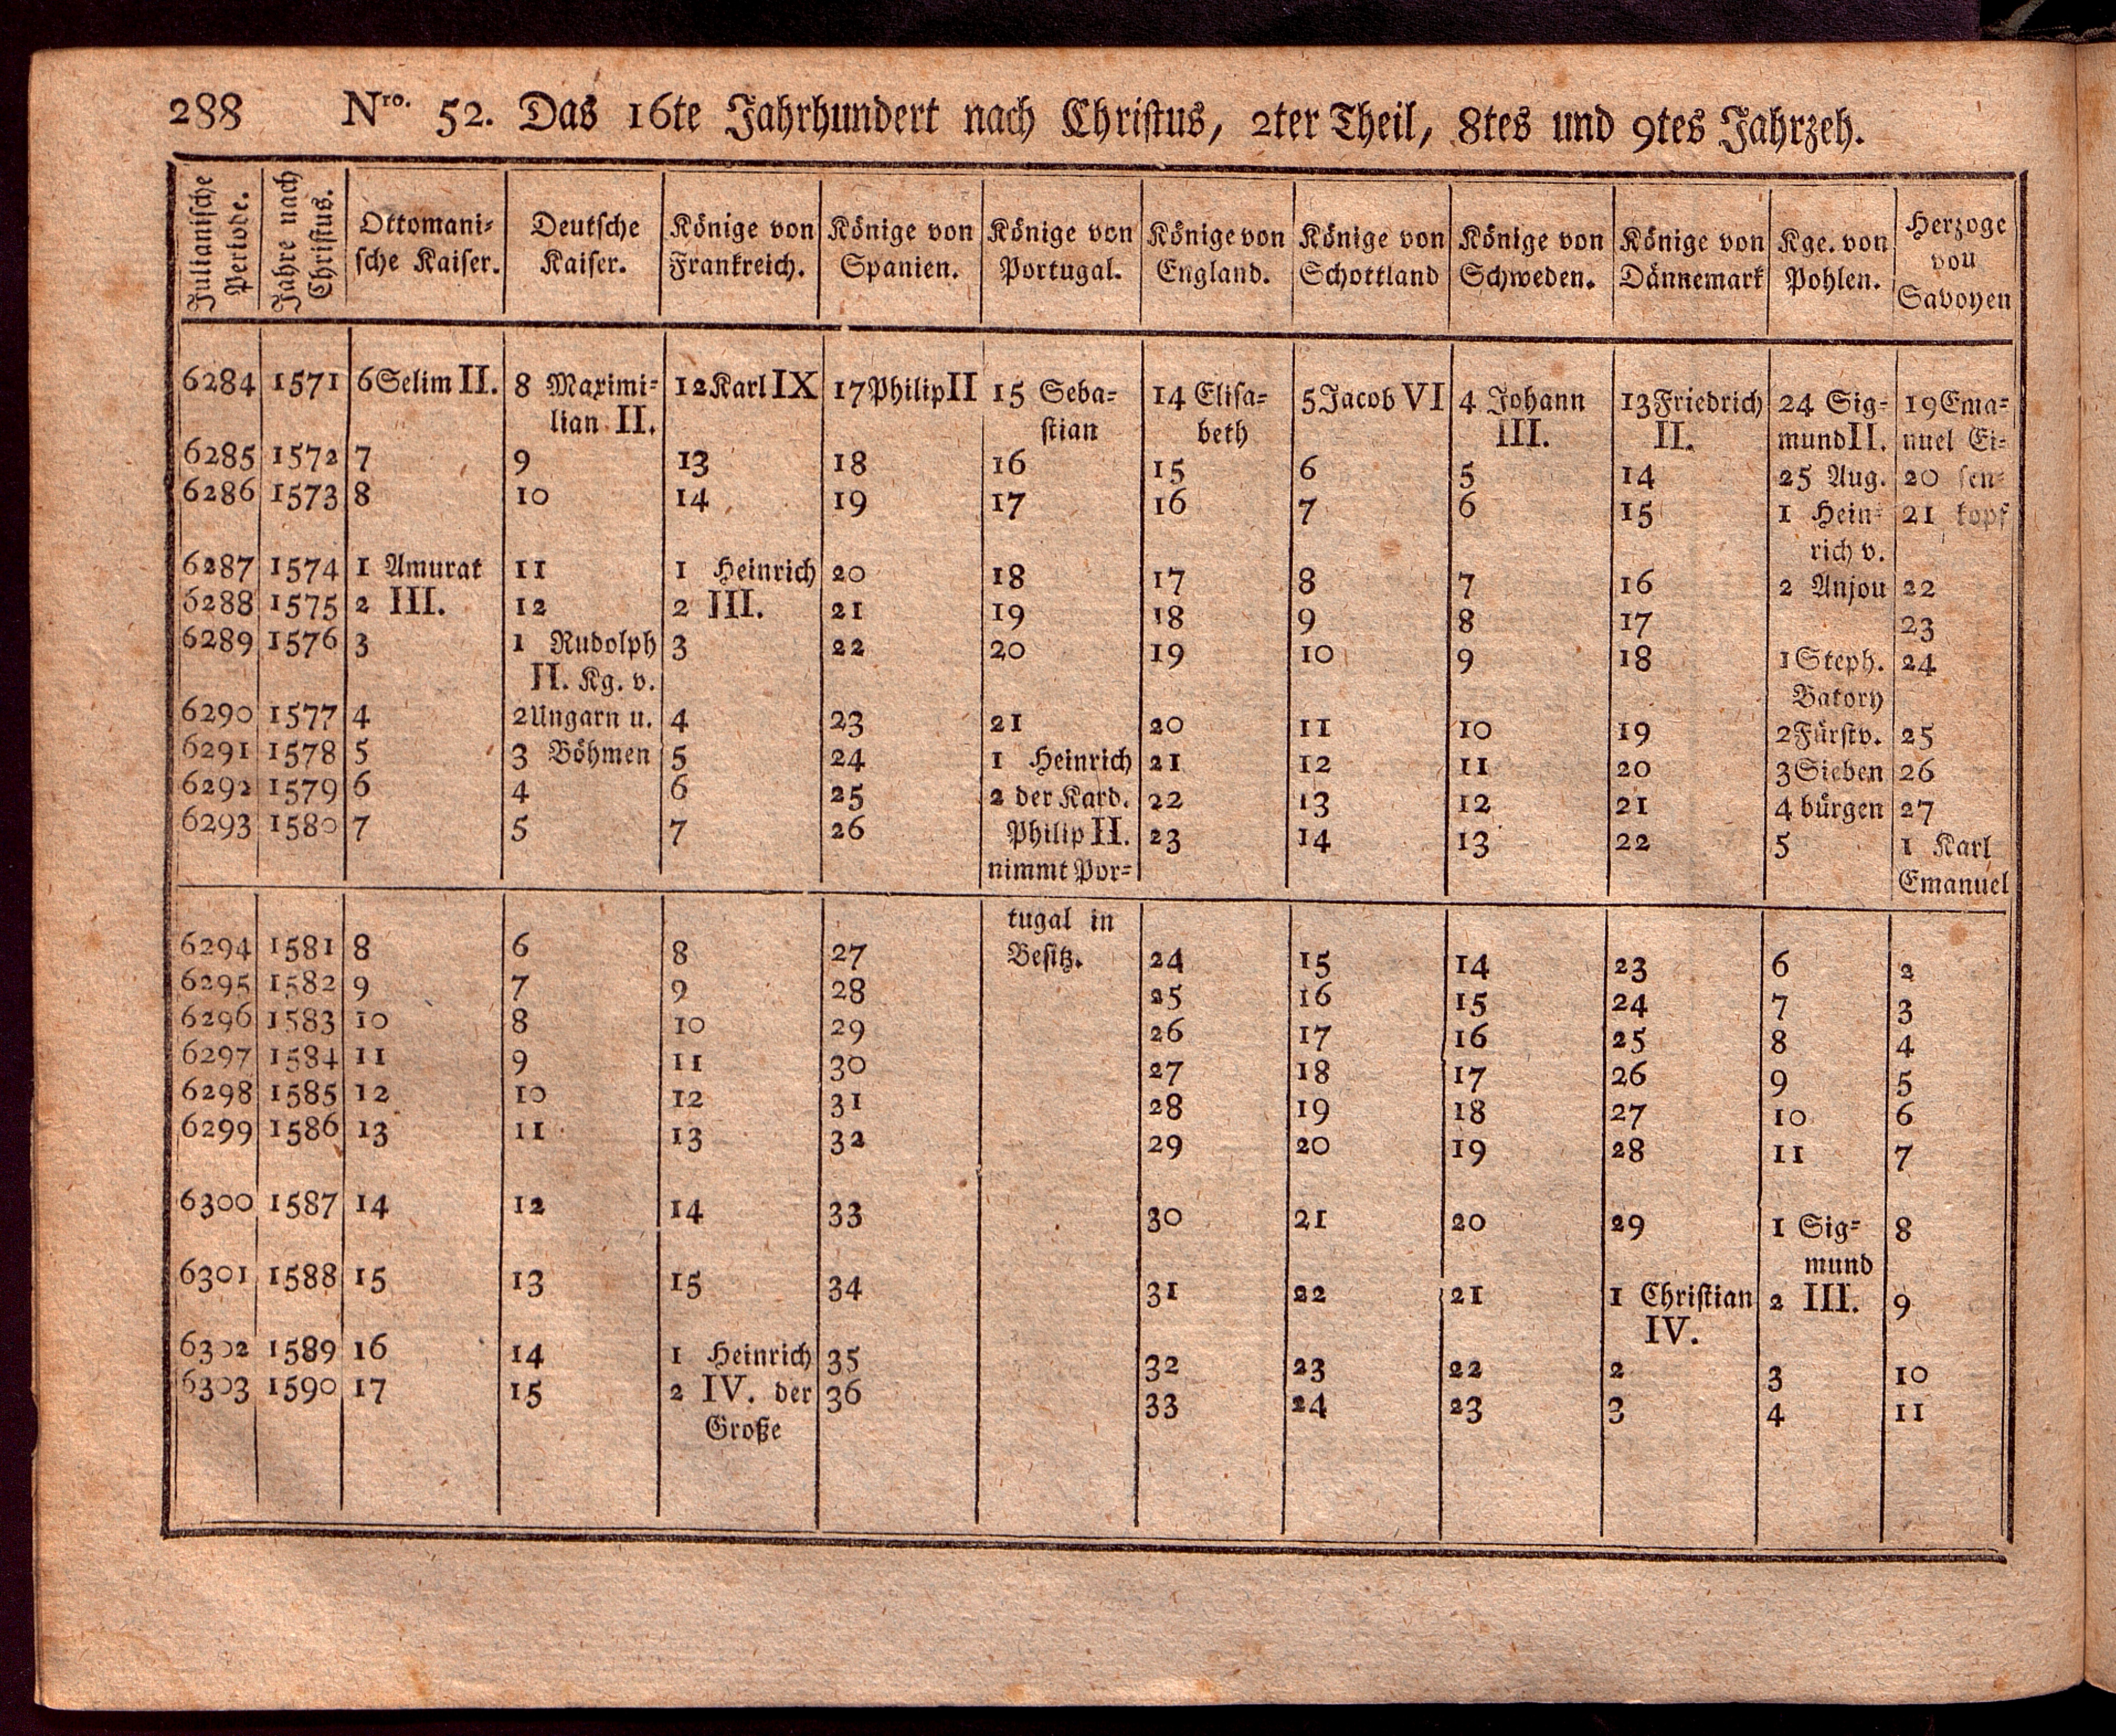 288 Nro. 52. Das 16te Jahrhundert nach Christus, 2ter Theil, 8tes und 9tes Jahrzeh.
Julianische Periode. Jahre nach Christus. Ottomani- Deutsche Könige von Könige von Könige von Könige von Könige von Könige von Könige von Kge. von Herzoge
sche Kaiser. Kaiser. Frankreich. Spanien. Portugal. England. Schottland Schweden. Dännemark Pohlen. von
Savoyen
6284 1571 6 Selim II. 8 Maximi- 12 Karl IX 17 Philip II 15 Seba- 14 Elisa- 5 Jacob VI 4 Johann 13 Friedrich 24 Sig- 19 Ema-
lian II. stian beth III. II. mund II. nuel Ei-
6285 1572 7 9 13 18 16 15 6 5 14 25 Aug. 20 sen-
6286 1573 8 10 14 19 17 16 7 6 15 1 Hein- 21 kopf
rich v.
6287 1574 1 Amurat 11 1 Heinrich 20 18 17 8 7 16 2 Anjou 22
6288 1575 2 III. 12 2 III. 21 19 18 9 8 17 23
6289 1576 3 1 Rudolph 3 22 20 19 10 9 18 1 Steph. 24
II. Kg. v. Batory
6290 1577 4 2 Ungarn u. 4 23 21 20 11 10 19 2 Fürstv. 25
6291 1578 5 3 Böhmen 5 24 1 Heinrich 21 12 11 20 3 Sieben 26
6292 1579 6 4 6 25 2 der Kard. 22 13 12 21 4 bürgen 27
6293 1580 7 5 7 26 Philip II. 23 14 13 22 5 1 Karl
nimmt Por- Emanuel
tugal in
6294 1581 8 6 8 27 Besitz. 24 15 14 23 6 2
6295 1582 9 7 9 28 25 16 15 24 7 3
6296 1583 10 8 10 29 26 17 16 25 8 4
6297 1584 11 9 11 30 27 18 17 26 9 5
6298 1585 12 10 12 31 28 19 18 27 10 6
6299 1586 13 11 13 32 29 20 19 28 11 7
6300 1587 14 12 14 33 30 21 20 29 1 Sig- 8
mund
6301 1588 15 13 15 34 31 22 21 1 Christian 2 III. 9
IV.
6302 1589 16 14 1 Heinrich 35 32 23 22 2 3 10
6303 1590 17 15 2 IV. der 36 33 24 23 3 4 11
Große